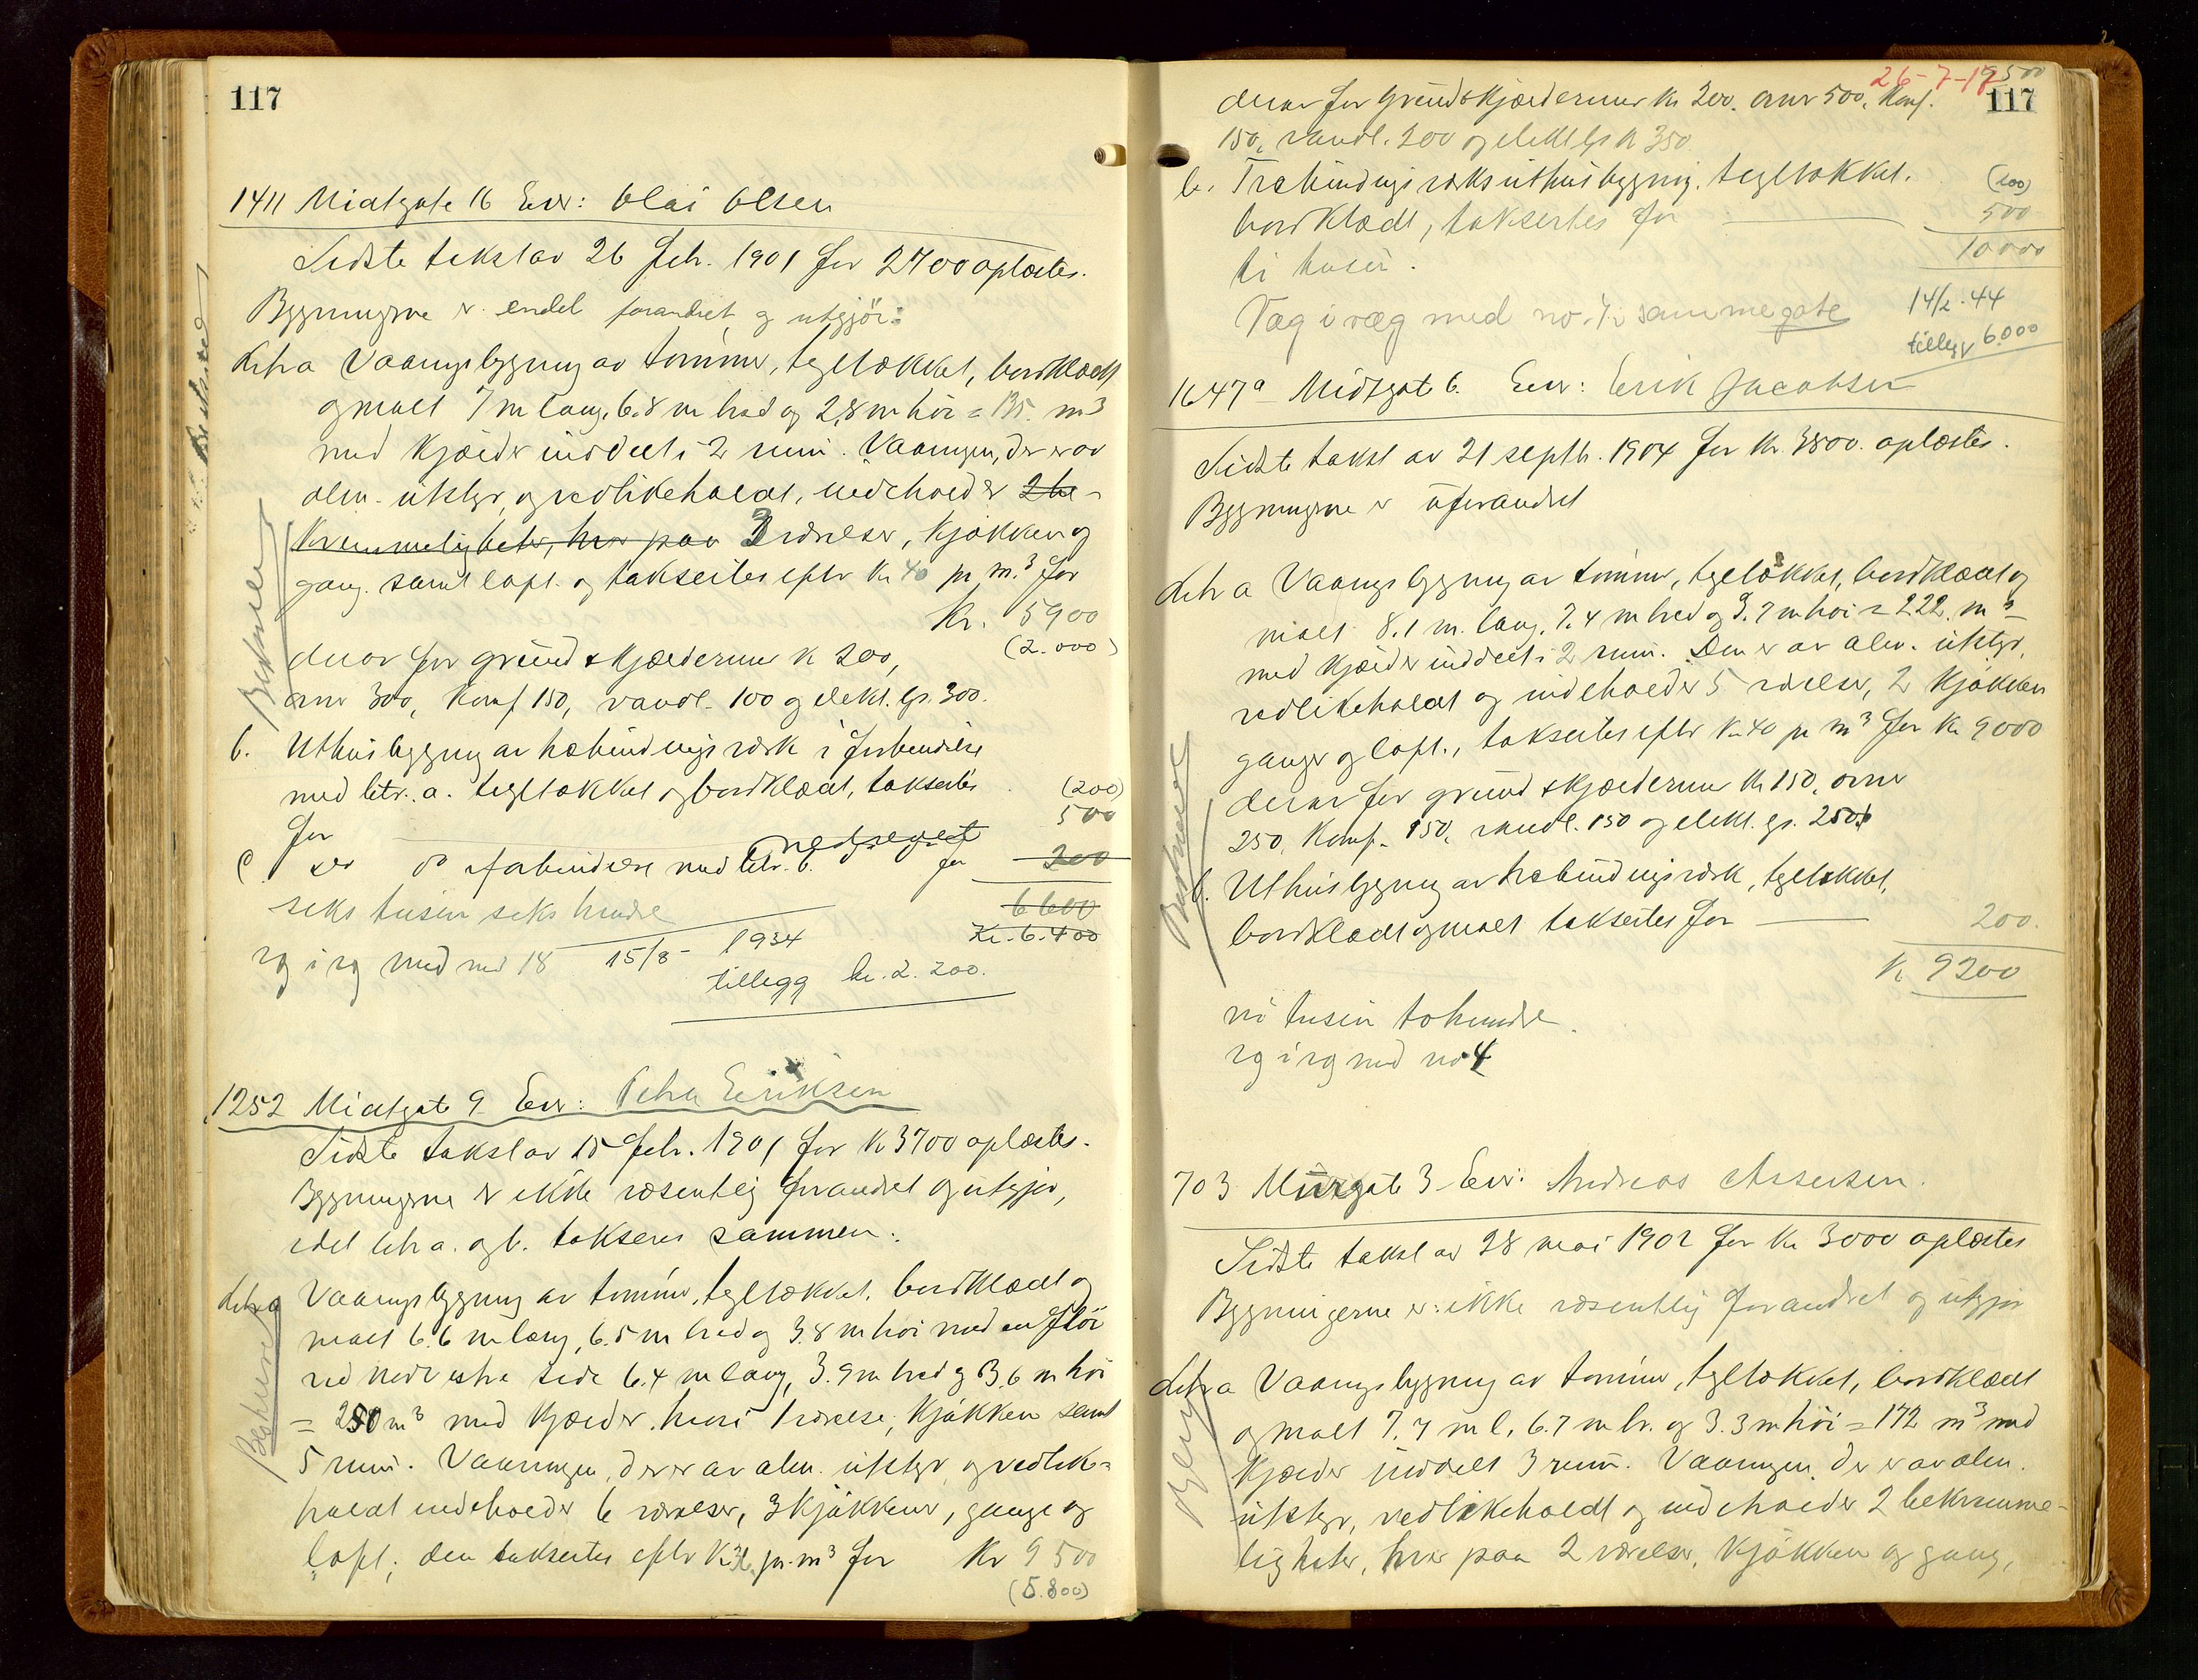 117
1411 Midtgate 16 Eier: Olai Olsen
Sidste takst av 26 febr. 1901 for 2700 oplæstes.
Bygningerne er endel forandret og utgjör:
Litr a Vaaningsbygning av tømmer, tegltækket, bordklædt
og malt 7 m lang, 6.8 m bred og 2,8 m höi = 135 m3
med kjælder inddelt i 2 rum. Vaaningen, der er av
alm. utstyr og vedlikeholdt, indeholder 2 be-
kvemmeligheter, hver paa 3 værelser, kjøkken og
gang samt loft og takseres efter kr 40 pr m.3 for
Kr. 5900
derav for grund & kjældermur k 200, (2.000)
ovne 300, komf 150, vandl. 100 og elekt. lys. 300.
b. Uthusbygning av træbindingsverk i forbindelse
med litr. a. tegltækket og bordklædt, takseres (200)
for 500
nedrevet
c. do do i forbindelse med litr. b. for 200
seks tusen seks hundre 6600
Kr. 6.400
vg i vg med no 18 15/8 - 1934
tillegg kr. 2.200.
Beskrevet
1252 Midtgate 9 Eier: Petra Eriksen
Sidste takst av 15 febr. 1901 for k 3700 oplæstes.
Bygningerne er ikke væsentlig forandret og utgjør,
idet litr a. og b. takseres sammen:
Litr a Vaaningsbygning av tømmer, tegltækket, bordklædt og
malt 6.6 m lang, 6.5 m bred og 3.8 m höi med en flöi
ved nordvestre side 6.4 m lang, 3.9 m bred og 3.6 m höi
= 250 m3 med kjælder, hvori 1 værelse, kjøkken samt
5 rum. Vaaningen, der er av alm. utstyr og vedlike-
holdt indeholder 6 værelser, 3 kjøkkener, gange og
loft; den takseres efter kr 38 pr. m3 for Kr 9500
(5.800)
Beskrevet
26-7-17 9500
117
derav for grund & kjældermur kr 200. ovne 500, komf.
150, vandl. 200 og elekt lys k 350
b. Træbindingsverks uthusbygning, tegltækket, (200)
bordklædt, takseres for 500
10000
ti tusen.
Væg i væg med no. 4 samme gate 14/2.44
tillegg 6.000
1647a Midtgate 6. Eier: Erik Jacobsen
Sidste takst av 21 septb. 1904 for kr. 3800. oplæstes.
Bygningerne er uforandret
Litr a Vaaningsbygning av tømmer, tegltækket, bordklædt og
malt 8.1 m. lang, 7.4 m bred og 3.7 m höi = 222 m3
med kjælder inddelt i 2 rum. Den er av alm. utstyr,
vedlikeholdt og indeholder 5 værelser, 2 kjøkken
gange og loft, takseres efter kr 40 pr m3 for kr 9000
derav for grund & kjældermur kr 150, ovne
250, komf. 150, vandl. 150 og elekt. lys. 250
b. Uthusbygning av træbindingsverk, tegltækket,
bordklædt og malt takseres for 200.
k 9200
ni tusen tohundre.
vg i vg med no 4
Beskrevet
703 Murgate 3 Eier: Andreas Assersen.
Sidste takst av 28 mai 1902 for kr 3000 oplæstes
Bygningerne er ikke væsentlig forandret og utgjør
Litr a Vaaningsbygning av tømmer, tegltækket, bordklædt
og malt 7.7 m l, 6.7 m br. og 3.3 m höi = 172 m3 med
kjælder inddelt 3 rum. Vaaningen, der er av alm.
utstyr, vedlikeholdt og indeholder 2 bekvemme-
ligheter, hver paa 2 værelser, kjøkken og gang,